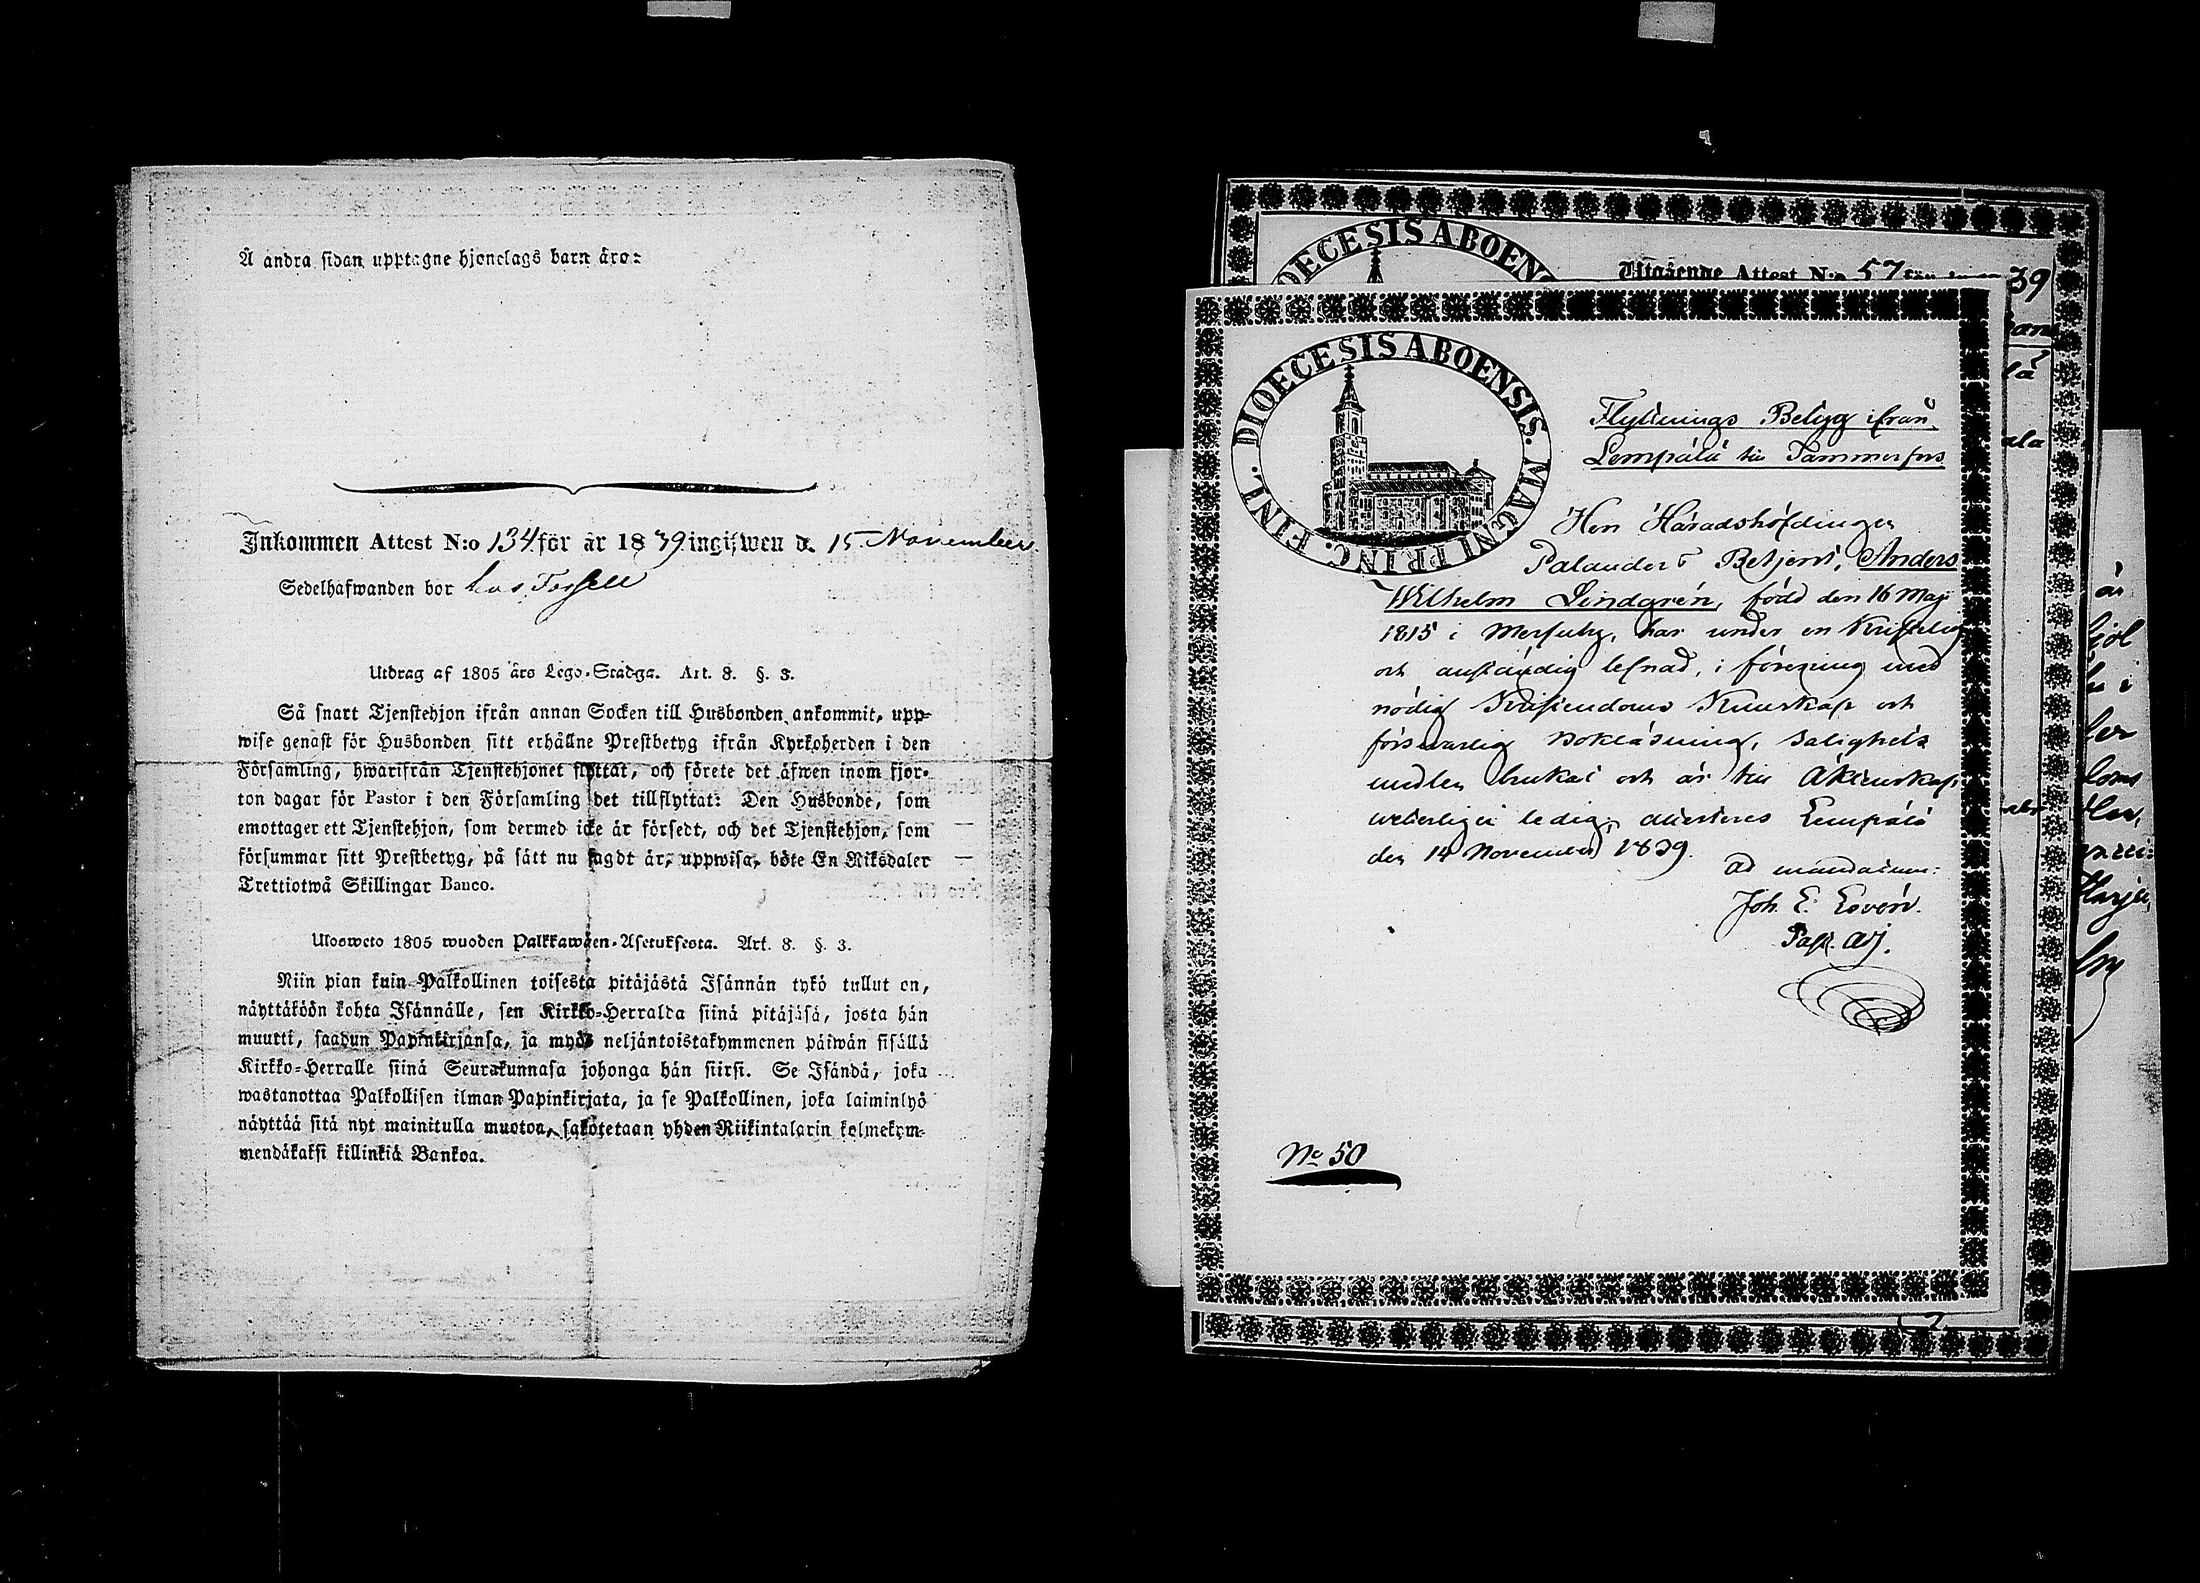 Å andra sidan upptagne hjonelags barn äro:
Inkommen Attest N:o 134 för år 1839 ingifwen d. 15 November.
Sedelhafwanden bor hos Forsell
Utdrag af 1805 års Lego-Stadga. Art. 8. §. 3.
Så snart Tjenstehjon ifrån annan Socken till Husbonden ankommit, upp-
wise genast för Husbonden sitt erhållne Prestbetyg ifrån Kyrkoherden i den
Församling, hwarifrån Tjenstehjonet flyttat, och förete det äfwen inom fjor-
ton dagar för Pastor i den Församling det tillflyttat: Den Husbonde, som
emottager ett Tjenstehjon, som dermed icke är försedt, och det Tjenstehjon, som
försummar sitt Prestbetyg, på sätt nu sagdt är, uppwisa, böte En Riksdaler
Trettiotwå Skillingar Banco.
Ulosweto 1805 wuoden Palkkawäen-Asetuksesta. Art. 8. §. 3.
Niin pian kuin Palkollinen toisesta pitäjästä Isännän tykö tullut on,
näyttäköön kohta Isännälle, sen Kirkko-Herralda siinä pitäjäsä, josta hän
muutti, saadun Papinkirjansa, ja myös neljäntoistakymmenen päiwän sisällä
Kirkko-Herralle siinä Seurakunnasa johonga hän siirsi. Se Isändä, joka
wastanottaa Palkollisen ilman Papinkirjata, ja se Palkollinen, joka laiminlyö
näyttää sitä nyt mainitulla muotoa, sakotetaan yhden Riikintalarin kolmekym-
mendäkaksi killinkiä Bankoa.
DIOECESIS ABOEN
Utgående Attest N:o 57 för 39
DIOECESIS ABOENSIS. MAGNI PRINC. FINL.
Flyttnings Betyg ifrån
Lempälä till Tammerfors
Herr Häradshöfdingen
Palanders Betjent, Anders
Wilhelm Lindgrén, född den 16 Maji
1815 i Messuby, har under en Kristelig
och anständig lefnad, i förening med
nödig Kristendoms Kunskap och
försvarlig Bokläsning, Salighets
medlen brukat och är till Äktenskap
veterligen ledig; attesteras Lempälä
den 14 November 1839.
Ad mandatum:
Joh. E.
Past. Adj.
No 50